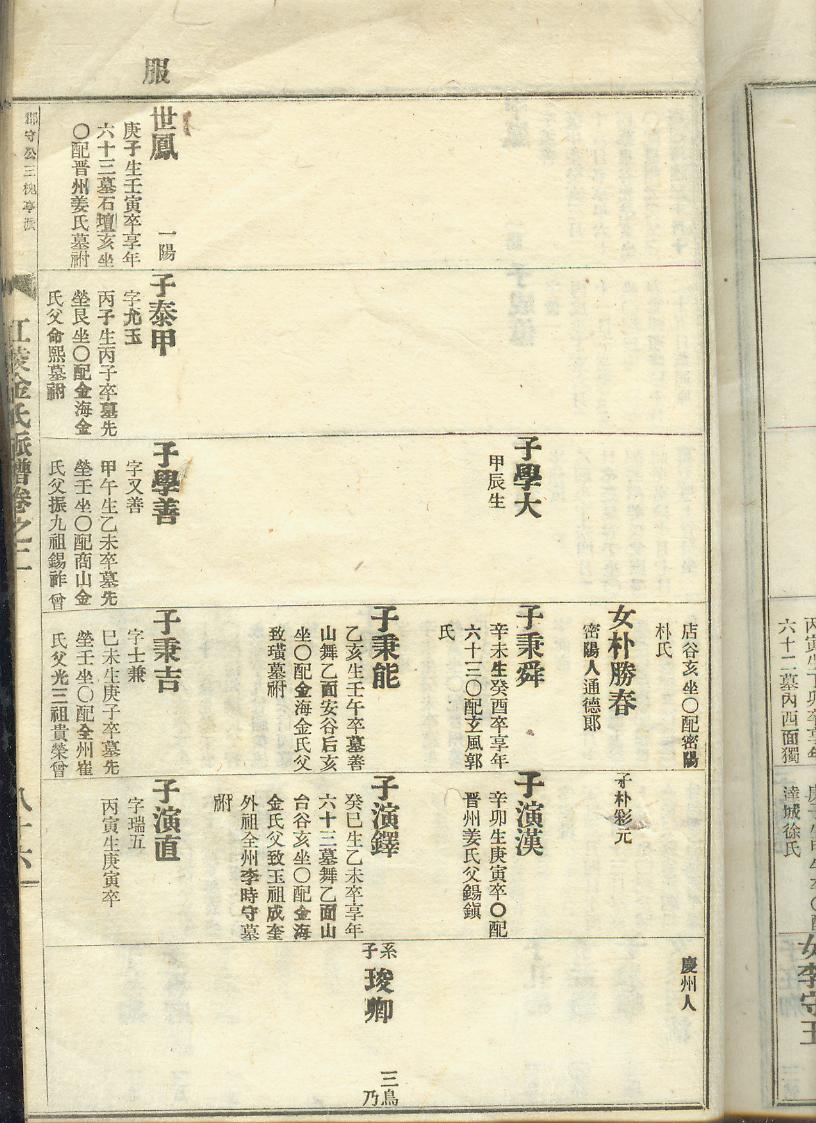 服
世鳳
一陽
庚子生壬寅卒享年
六十三墓石壇亥坐
〇配晋州姜氏墓祔
子泰甲
字允玉
丙子生丙子卒墓先
塋艮坐〇配金海金
氏父命熙墓祔
子學大
甲辰生
子學善
字又善
甲午生乙未卒墓先
塋壬坐〇配商山金
氏父振九祖錫祚曾
店谷亥坐〇配密陽
朴氏
女朴勝春
密陽人通德郎
子秉舜
辛未生癸酉卒享年
六十三〇配玄風郭
氏
子秉能
乙亥生壬午卒墓善
山舞乙面安谷后亥
坐〇配金海金氏父
致璜墓祔
子秉吉
字士兼
巳未生庚子卒墓先
塋壬坐〇配全州崔
氏父光三祖貴榮曾
子朴彩元
子演漢
辛卯生庚寅卒〇配
晋州姜氏父錫鎭
子演鐸
癸巳生乙未卒享年
六十三墓舞乙面山
台谷亥坐〇配金海
金氏父致玉祖成奎
外祖全州李時守墓
祔
子演直
字瑞五
丙寅生庚寅卒
慶州人
系子
琁卿
三鳥乃
郡守公三槐亭派
江陵金氏派譜卷之二
八十六
丙寅生丁卯卒享年
六十二墓內西面獨
達城徐氏
女李守玉